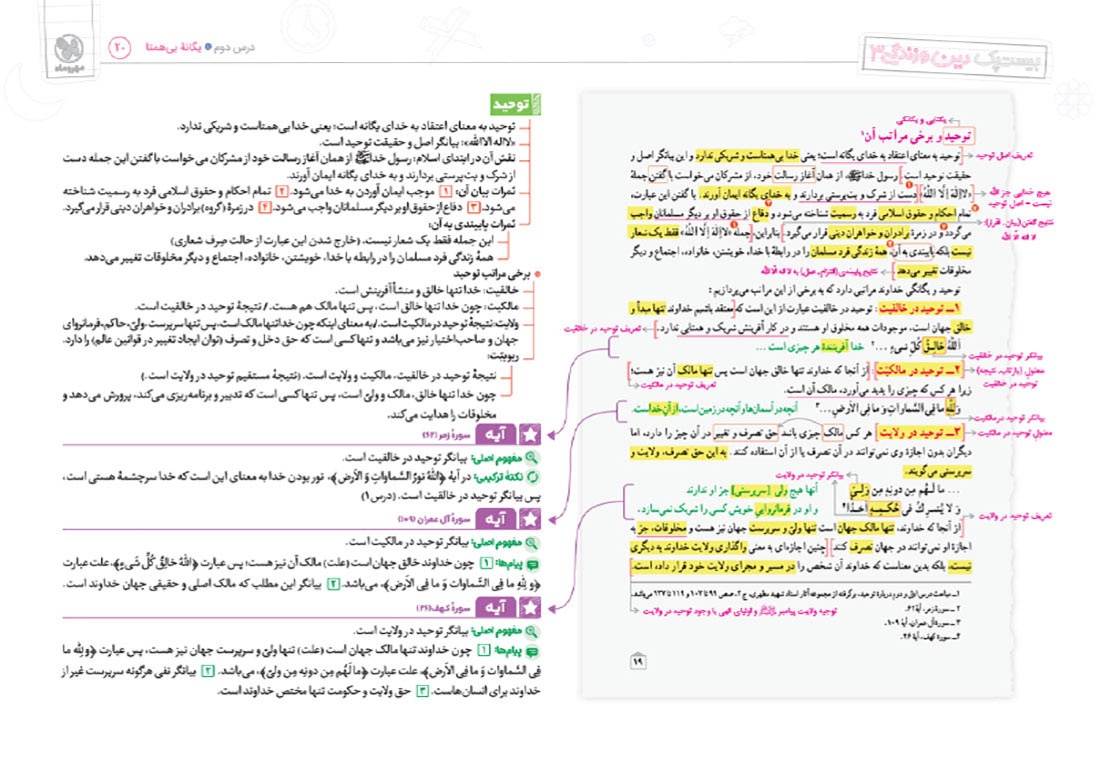 بیست‌پک دین و زندگی ۳
درس دوم • یگانهٔ بی‌همتا ۲۰
مهروماه
یکتایی و یگانگی
توحید و برخی مراتب آن¹
توحید به معنای اعتقاد به خدای یگانه است؛ یعنی خدا بی‌همتاست و شریکی ندارد و این بیانگر اصل و
تعریف اصل توحید
حقیقت توحید است. رسول خدا ﷺ، از همان آغاز رسالت خود، از مشرکان می‌خواست با گفتن جملهٔ
«لا اِلهَ اِلَّا اللّٰهُ» دست از شرک و بت‌پرستی بردارند و به خدای یگانه ایمان آورند. با گفتن این عبارت،
هیچ خدایی جز الله نیست = اصل توحید
تمام احکام و حقوق اسلامی فرد به رسمیت شناخته می‌شود و دفاع از حقوق او بر دیگر مسلمانان واجب
نتایج گفتن (بیان، اقرار): لا اله الّا الله
می‌گردد و در زمرهٔ برادران و خواهران دینی قرار می‌گیرد. بنابراین، جمله «لا اِلهَ اِلَّا اللّٰهُ» فقط یک شعار
نیست بلکه پایبندی به آن، همهٔ زندگی فرد مسلمان را در رابطه با خدا، خویشتن، خانواده، اجتماع و دیگر
مخلوقات تغییر می‌دهد.
نتایج پایبندی (التزام، عمل) به لا اله الّا الله
توحید و یگانگی خداوند مراتبی دارد که به برخی از این مراتب می‌پردازیم:
۱ــ توحید در خالقیت: توحید در خالقیت عبارت از این است که معتقد باشیم خداوند تنها مبدأ و
خالق جهان است، موجودات همه مخلوق او هستند و در کار آفرینش شریک و همتایی ندارد.
تعریف توحید در خالقیت
اَللّٰهُ خالِقُ کُلِّ شَیءٍ ...² خدا آفرینندهٔ هر چیزی است ...
بیانگر توحید در خالقیت
۲ــ توحید در مالکیّت: از آنجا که خداوند تنها خالق جهان است پس تنها مالک آن نیز هست؛
معلول (بازتاب، نتیجه) توحید در خالقیت
زیرا هر کس که چیزی را پدید می‌آورد، مالک آن است.
تعریف توحید در مالکیت
وَ لِلّٰهِ ما فِی السَّماواتِ وَ ما فِی الاَرضِ...³ آنچه در آسمان‌ها و آنچه در زمین است، از آنِ خداست.
بیانگر توحید در مالکیت
۳ــ توحید در ولایت: هر کس مالک چیزی باشد حق تصرف و تغییر در آن چیز را دارد، اما
معلول توحید در مالکیت
دیگران بدون اجازهٔ وی نمی‌توانند در آن تصرف یا از آن استفاده کنند. به این حق تصرف، ولایت و
سرپرستی می‌گویند.
بیانگر توحید در ولایت
... ما لَهُم مِن دونِهِ مِن وَلِیٍّ آنها هیچ ولی [سرپرستی] جز او ندارند
وَ لا یُشرِکُ فی حُکمِهِ اَحَدًا⁴ و او در فرمانروایی خویش کسی را شریک نمی‌سازد.
تعریف توحید در ولایت
از آنجا که خداوند، تنها مالک جهان است تنها ولیّ و سرپرست جهان نیز هست و مخلوقات، جز به
اجازهٔ او نمی‌توانند در جهان تصرف کنند. چنین اجازه‌ای به معنی واگذاری ولایت خداوند به دیگری
نیست، بلکه بدین معناست که خداوند آن شخص را در مسیر و مجرای ولایت خود قرار داده است.
۲ــ سورهٔ زمر، آیهٔ ۶۲.
توجیه ولایت پیامبر ﷺ و اولیای الهی با وجود توحید در ولایت
۴ــ سورهٔ کهف، آیهٔ ۲۶.
۱۹
توحید
توحید به معنای اعتقاد به خدای یگانه است؛ یعنی خدا بی‌همتاست و شریکی ندارد.
«لااله الاالله»: بیانگر اصل و حقیقت توحید است.
نقش آن در ابتدای اسلام: رسول خدا ﷺ از همان آغاز رسالت خود از مشرکان می‌خواست با گفتن این جمله دست
از شرک و بت‌پرستی بردارند و به خدای یگانه ایمان آورند.
ثمرات بیان آن: ۱ موجب ایمان آوردن به خدا می‌شود. ۲ تمام احکام و حقوق اسلامی فرد به رسمیت شناخته
می‌شود. ۳ دفاع از حقوق او بر دیگر مسلمانان واجب می‌شود. ۴ در زمرهٔ (گروه) برادران و خواهران دینی قرار می‌گیرد.
ثمرات پایبندی به آن:
این جمله فقط یک شعار نیست. (خارج شدن این عبارت از حالت صِرف شعاری)
همهٔ زندگی فرد مسلمان را در رابطه با خدا، خویشتن، خانواده، اجتماع و دیگر مخلوقات تغییر می‌دهد.
برخی مراتب توحید
خالقیت: خدا تنها خالق و منشأ آفرینش است.
مالکیت: چون خدا تنها خالق است، پس تنها مالک هم هست. / نتیجهٔ توحید در خالقیت است.
ولایت: نتیجهٔ توحید در مالکیت است. / به معنای اینکه چون خدا تنها مالک است، پس تنها سرپرست، ولیّ، حاکم، فرمانروای
جهان و صاحب‌اختیار نیز می‌باشد و تنها کسی است که حق دخل و تصرف (توان ایجاد تغییر در قوانین عالم) را دارد.
ربوبیّت:
نتیجهٔ توحید در خالقیت، مالکیت و ولایت است. (نتیجهٔ مستقیم توحید در ولایت است.)
چون خدا تنها خالق، مالک و ولیّ است، پس تنها کسی است که تدبیر و برنامه‌ریزی می‌کند، پرورش می‌دهد و
مخلوقات را هدایت می‌کند.
آیه سورهٔ زمر (۶۲)
مفهوم اصلی: بیانگر توحید در خالقیت است.
نکتهٔ ترکیبی: در آیهٔ ﴿اللّٰهُ نُورُ السَّماواتِ وَ الأرض﴾، نور بودن خدا به معنای این است که خدا سرچشمهٔ هستی است،
پس بیانگر توحید در خالقیت است. (درس ۱)
آیه سورهٔ آل عمران (۱۰۹)
مفهوم اصلی: بیانگر توحید در مالکیت است.
پیام‌ها: ۱ چون خداوند خالق جهان است (علت) مالک آن نیز هست؛ پس عبارت ﴿اللّٰهُ خالِقُ کُلِّ شَیءٍ﴾، علت عبارت
﴿و لِلّٰهِ ما فِی السَّماوات وَ ما فِی الأرض﴾، می‌باشد. ۲ بیانگر این مطلب که مالک اصلی و حقیقی جهان خداوند است.
آیه سورهٔ کهف (۲۶)
مفهوم اصلی: بیانگر توحید در ولایت است.
پیام‌ها: ۱ چون خداوند تنها مالک جهان است (علت) تنها ولیّ و سرپرست جهان نیز هست، پس عبارت ﴿وَ لِلّٰهِ ما
فِی السَّماوات وَ ما فِی الأرض﴾، علت عبارت ﴿ما لَهُم مِن دونِهِ مِن ولیّ﴾، می‌باشد. ۲ بیانگر نفی هرگونه سرپرست غیر از
خداوند برای انسان‌هاست. ۳ حق ولایت و حکومت تنها مختص خداوند است.